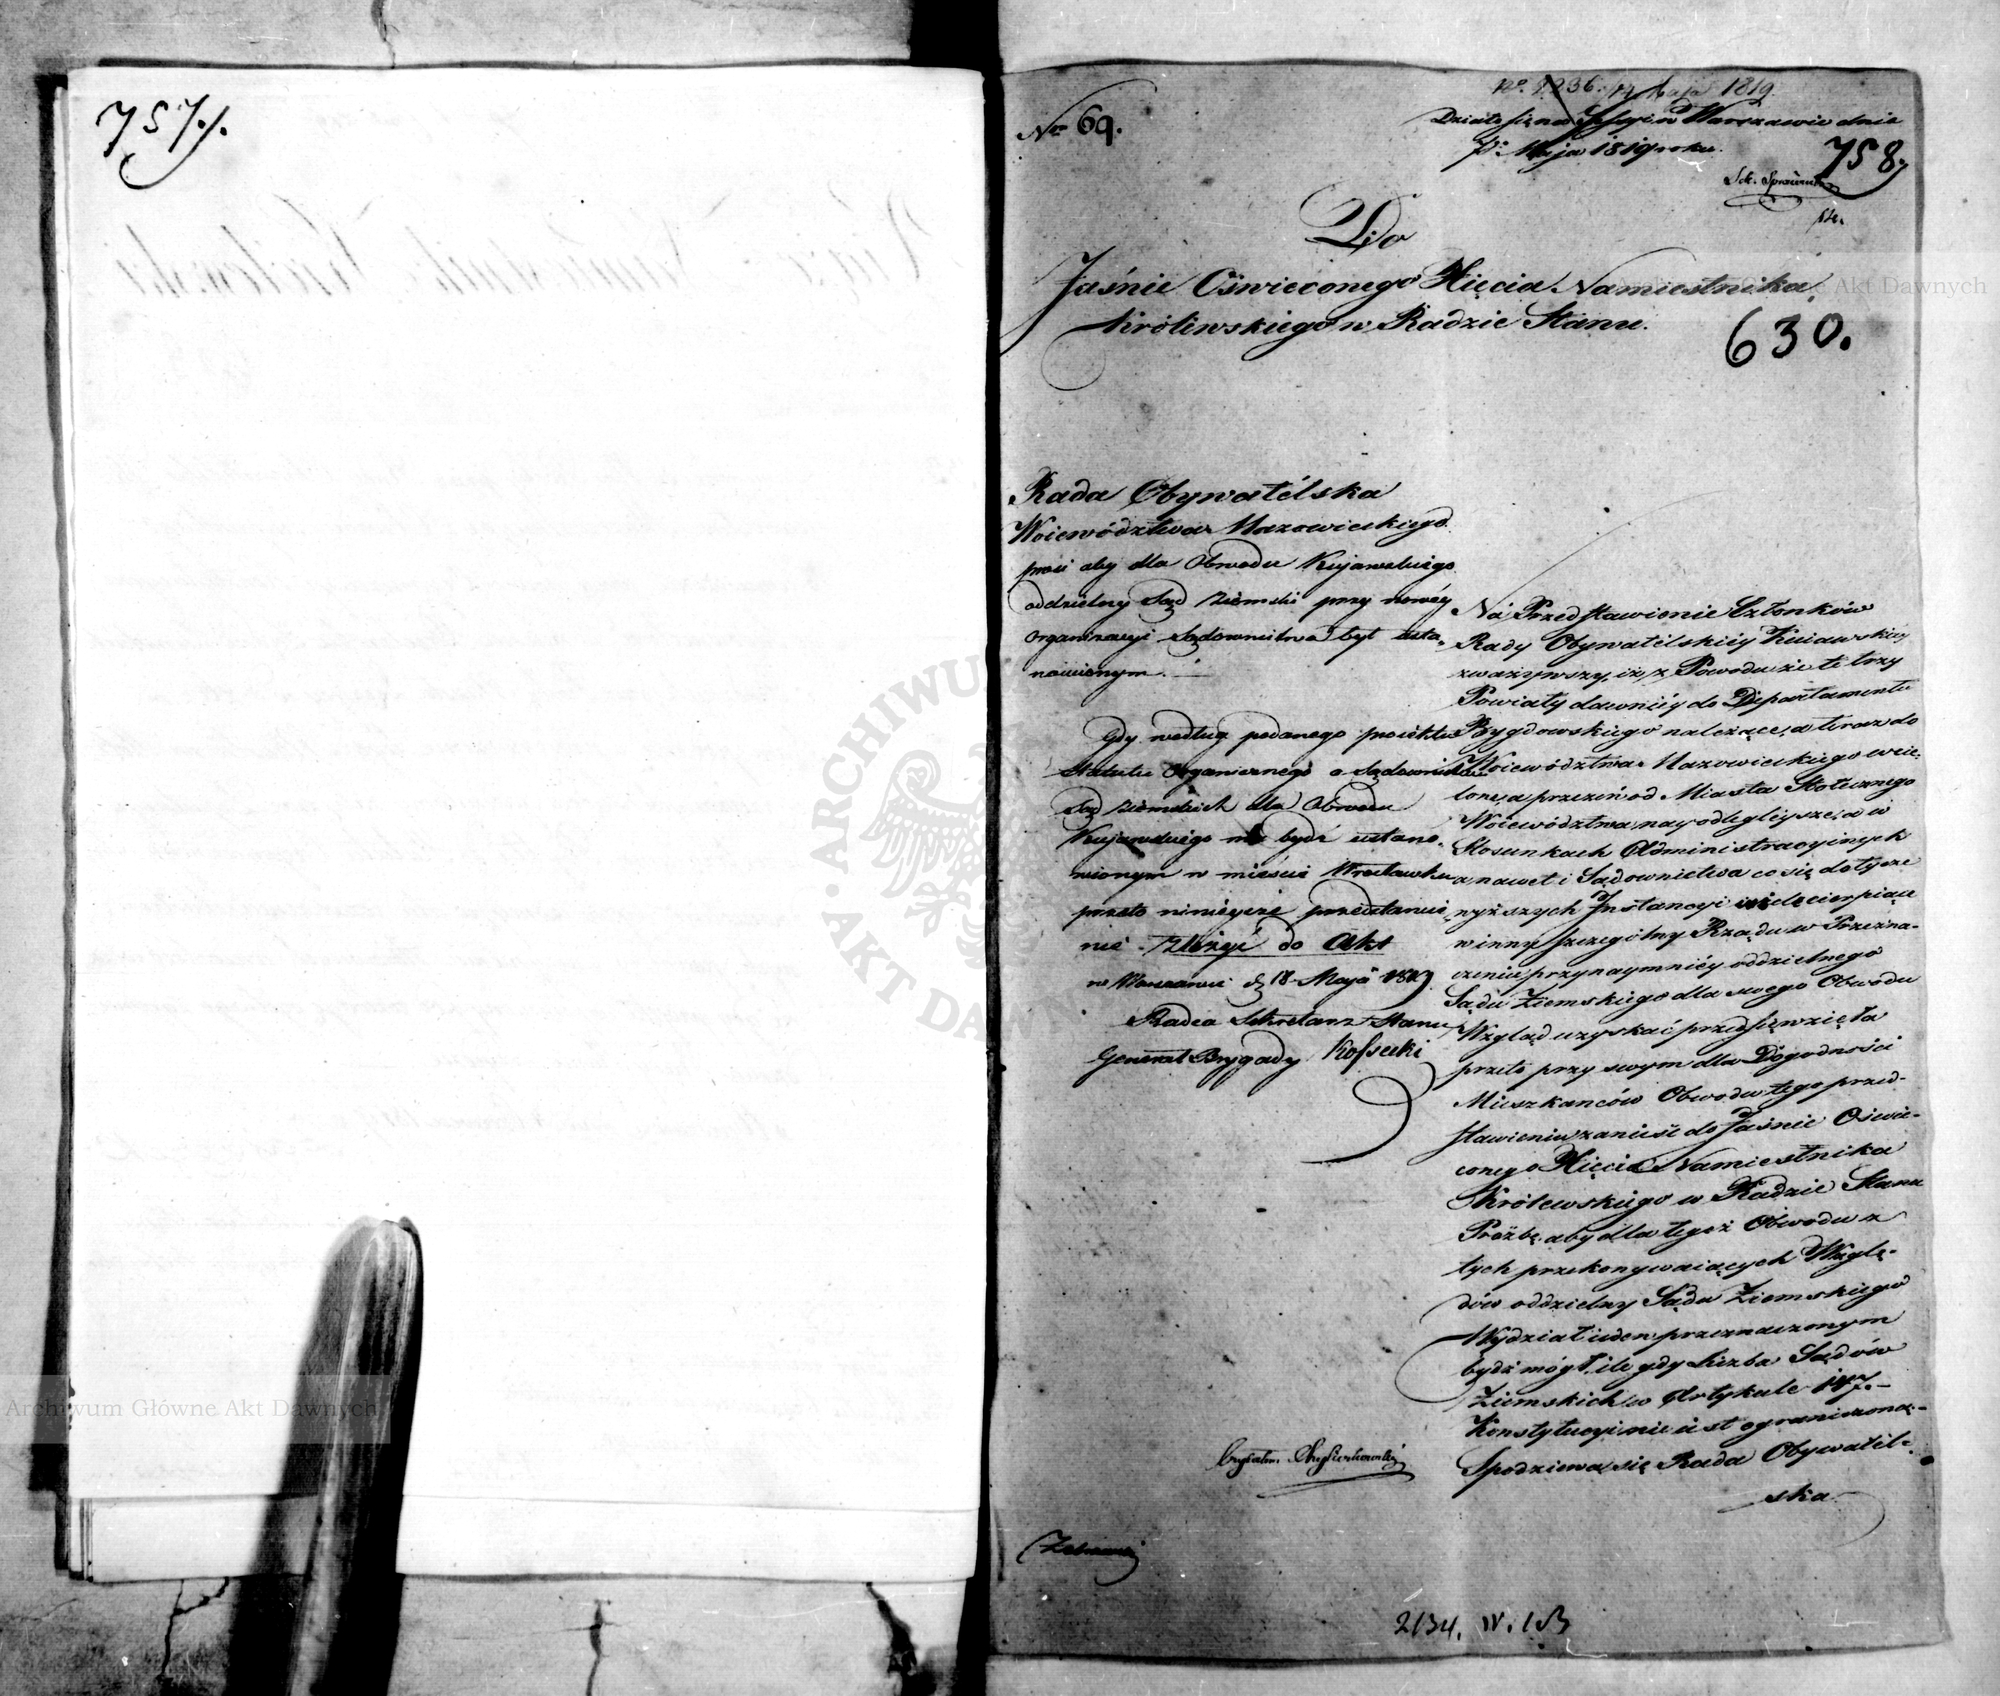 757.
No 69.
No 2236. 14 Maja 1819
Działo się na Sessyi w Warszawie dnia
7. Maja 1819 roku.
758
Do
Jaśnie Oświeconego Xięcia Namiestnika
Królewskiego w Radzie Stanu.
630.
Rada Obywatelska
Woiewództwa Mazowieckiego
prosi aby dla Obwodu Kujawskiego
oddzielny Sąd Ziemski przy nowéy
Organizacyi Sądownictwa był usta-
nowionym.
Gdy według podanego proiektu
Statutu Organicznego o Sądownictwie
Sąd Ziemskich dla Obwodu
Kujawskiego ma bydź ustano-
wionym w mieście Wrocławku
przeto ninieysze przedstawie-
nie - Złożyć do Akt
w Warszawie d. 18 Maja 1819.
Radca Sekretarz Stanu
Generał Brygady Kossecki
Na Przedstawienie Członków
Rady Obywatelskiéy Kuiawskiey
zważywszy, iż z Powodu że te trzy
Powiaty dawniéy do Departamentu
Bydgowskiego należące, a teraz do
Woiewództwa Mazowieckiego wcie-
lone, a przezeń od Miasta Stołecznego
Woiewództwa nayodlegléysze, a w
Stosunkach Administracyinych
a nawet i Sądownictwa co się dotycze
wyższych Instancyi wiele cierpiące
winny szczególny Rządu w Przezna-
czeniu przynaymniéy oddzielnego
Sądu Ziemskiego dla swego Obwodu
Wzgląd uzyskać przedsięwzięła
przeto przy swym dla Dogodności
Mieszkańców Obwodu tego przed-
stawieniu zanieść do Jaśnie Oświe-
conego Xięcia Namiestnika
Królewskiego w Radzie Stanu
Proźbę aby dla tegoż Obwodu z
tych przekonywaiących Wzglę-
dów oddzielny Sądu Ziemskiego
Wydział ieden przeznaczonym
bydź mógł, ile gdy Liczba Sądów
Ziemskich w Artykule 147.
Konstytucyi nie iest ograniczoną -
Spodziewa się Rada Obywatel-
ska
2134. IV. 1B
Archiwum Główne Akt Dawnych
Archiwum Główne Akt Dawnych
ARCHIWUM
AKT DAWNYCH